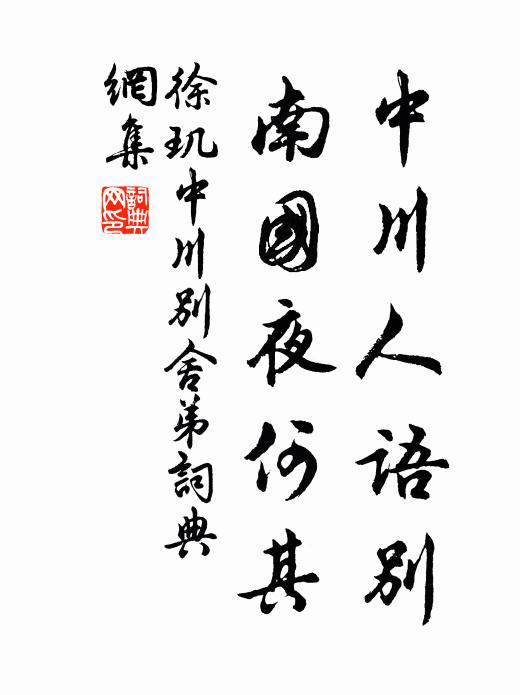 中川人語別
南國夜何其
徐玑中川別舍弟詞典
網集
詞典
网印